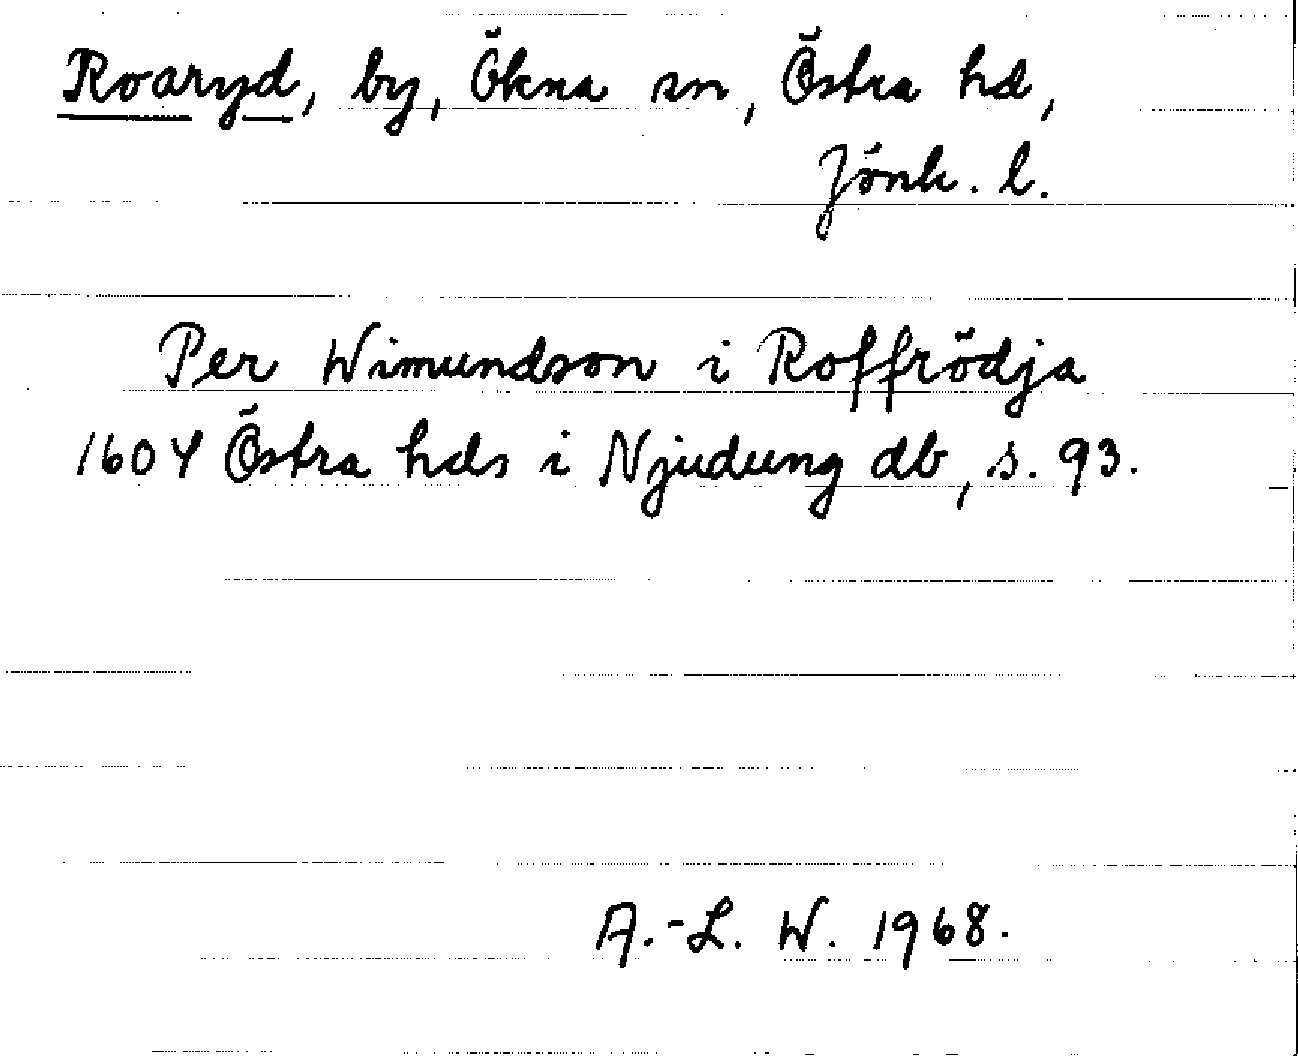 Roaryd, by, Ökna sn, Östra hd,
Jönk. l.
Per Wimundson i Roffrödja
1604 Östra hds i Njudung db, s. 93.
A.-L. W. 1968.